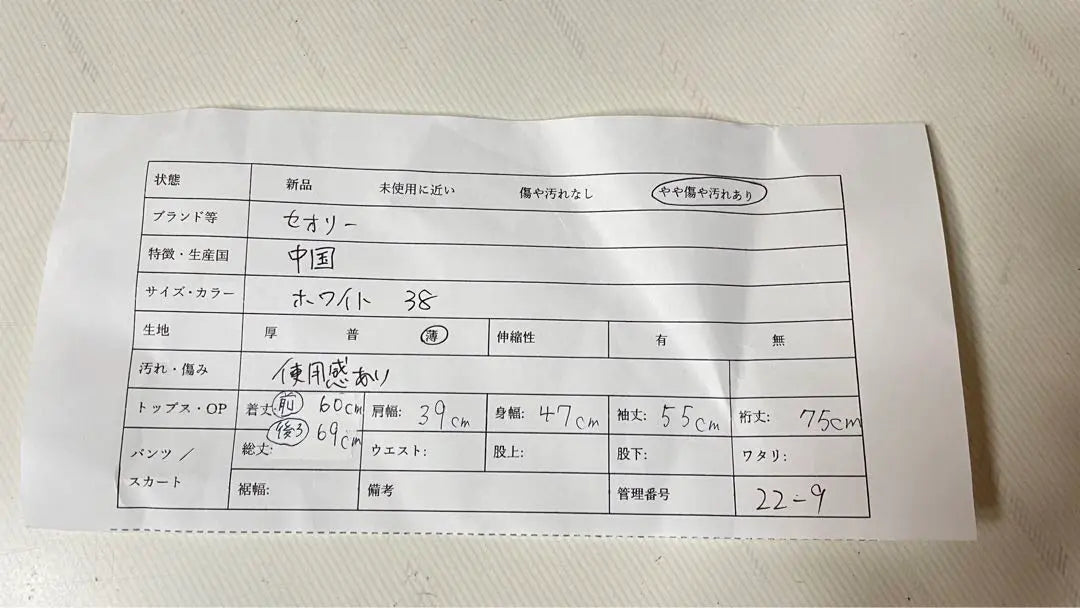 状態 新品 未使用に近い 傷や汚れなし やや傷や汚れあり
ブランド等 セオリー
特徴・生産国 中国
サイズ・カラー ホワイト 38
生地 厚 普 薄 伸縮性 有 無
汚れ・傷み 使用感あり
トップス・OP 着丈: 前 60cm 肩幅: 39cm 身幅: 47cm 袖丈: 55cm 裄丈: 75cm
後ろ 69cm
パンツ／ 総丈: ウエスト: 股上: 股下: ワタリ:
スカート 裾幅: 備考 管理番号 22-9